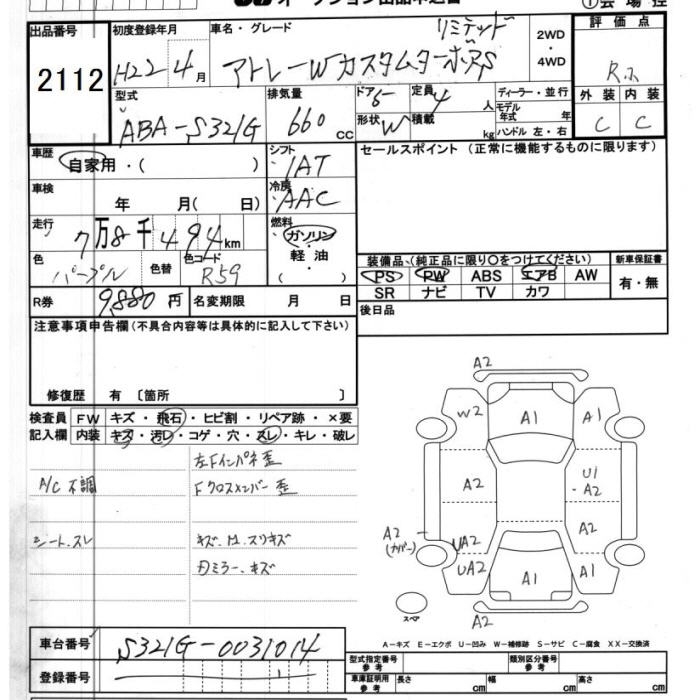 オークション出品申込書
①会場控
出品番号
2112
初度登録年月
H22年4月
車名・グレード
リミテッド
アトレーWカスタムターボRS
2WD・4WD
評価点
R
外装 内装
C C
型式
ABA-S321G
排気量
660 cc
ドア
形状 W
定員 4人
積載 kg
ディーラー・並行
モデル年式 年
ハンドル 左・右
車歴
自家用・( )
シフト
IAT
車検
年 月( 日)
冷房
AAC
走行
7万8千494km
燃料
ガソリン・軽油・
色
パープル
色替
色コード
R59
R券
9,880円
名変期限 月 日
セールスポイント(正常に機能するものに限ります)
装備品(純正品に限り〇をつけてください)
PS PW ABS エアB AW
SR ナビ TV カワ
新車保証書
有・無
後日品
注意事項申告欄(不具合内容等は具体的に記入して下さい)
修復歴 有 〔箇所 〕
検査員記入欄
FW キズ・飛石・ヒビ割・リペア跡・×要
内装 キズ・汚レ・コゲ・穴・スレ・キレ・破レ
左Fインパネ歪
A/C 不調
Fクロスメンバー歪
シート.スレ
キズ.凹.スリキズ
ミラー.キズ
A2
W2 A1 A1
A2 U1 A2
A2 (カバー)
UA2 A2
UA2 A1 A1
A2
スペア
A-キズ E-エクボ U-凹み W-補修跡 S-サビ C-腐食 XX-交換済
車台番号
S321G-0031014
登録番号
型式指定番号 参考
類別区分番号 参考
車庫証明用 参考
長さ cm 幅 cm 高さ cm